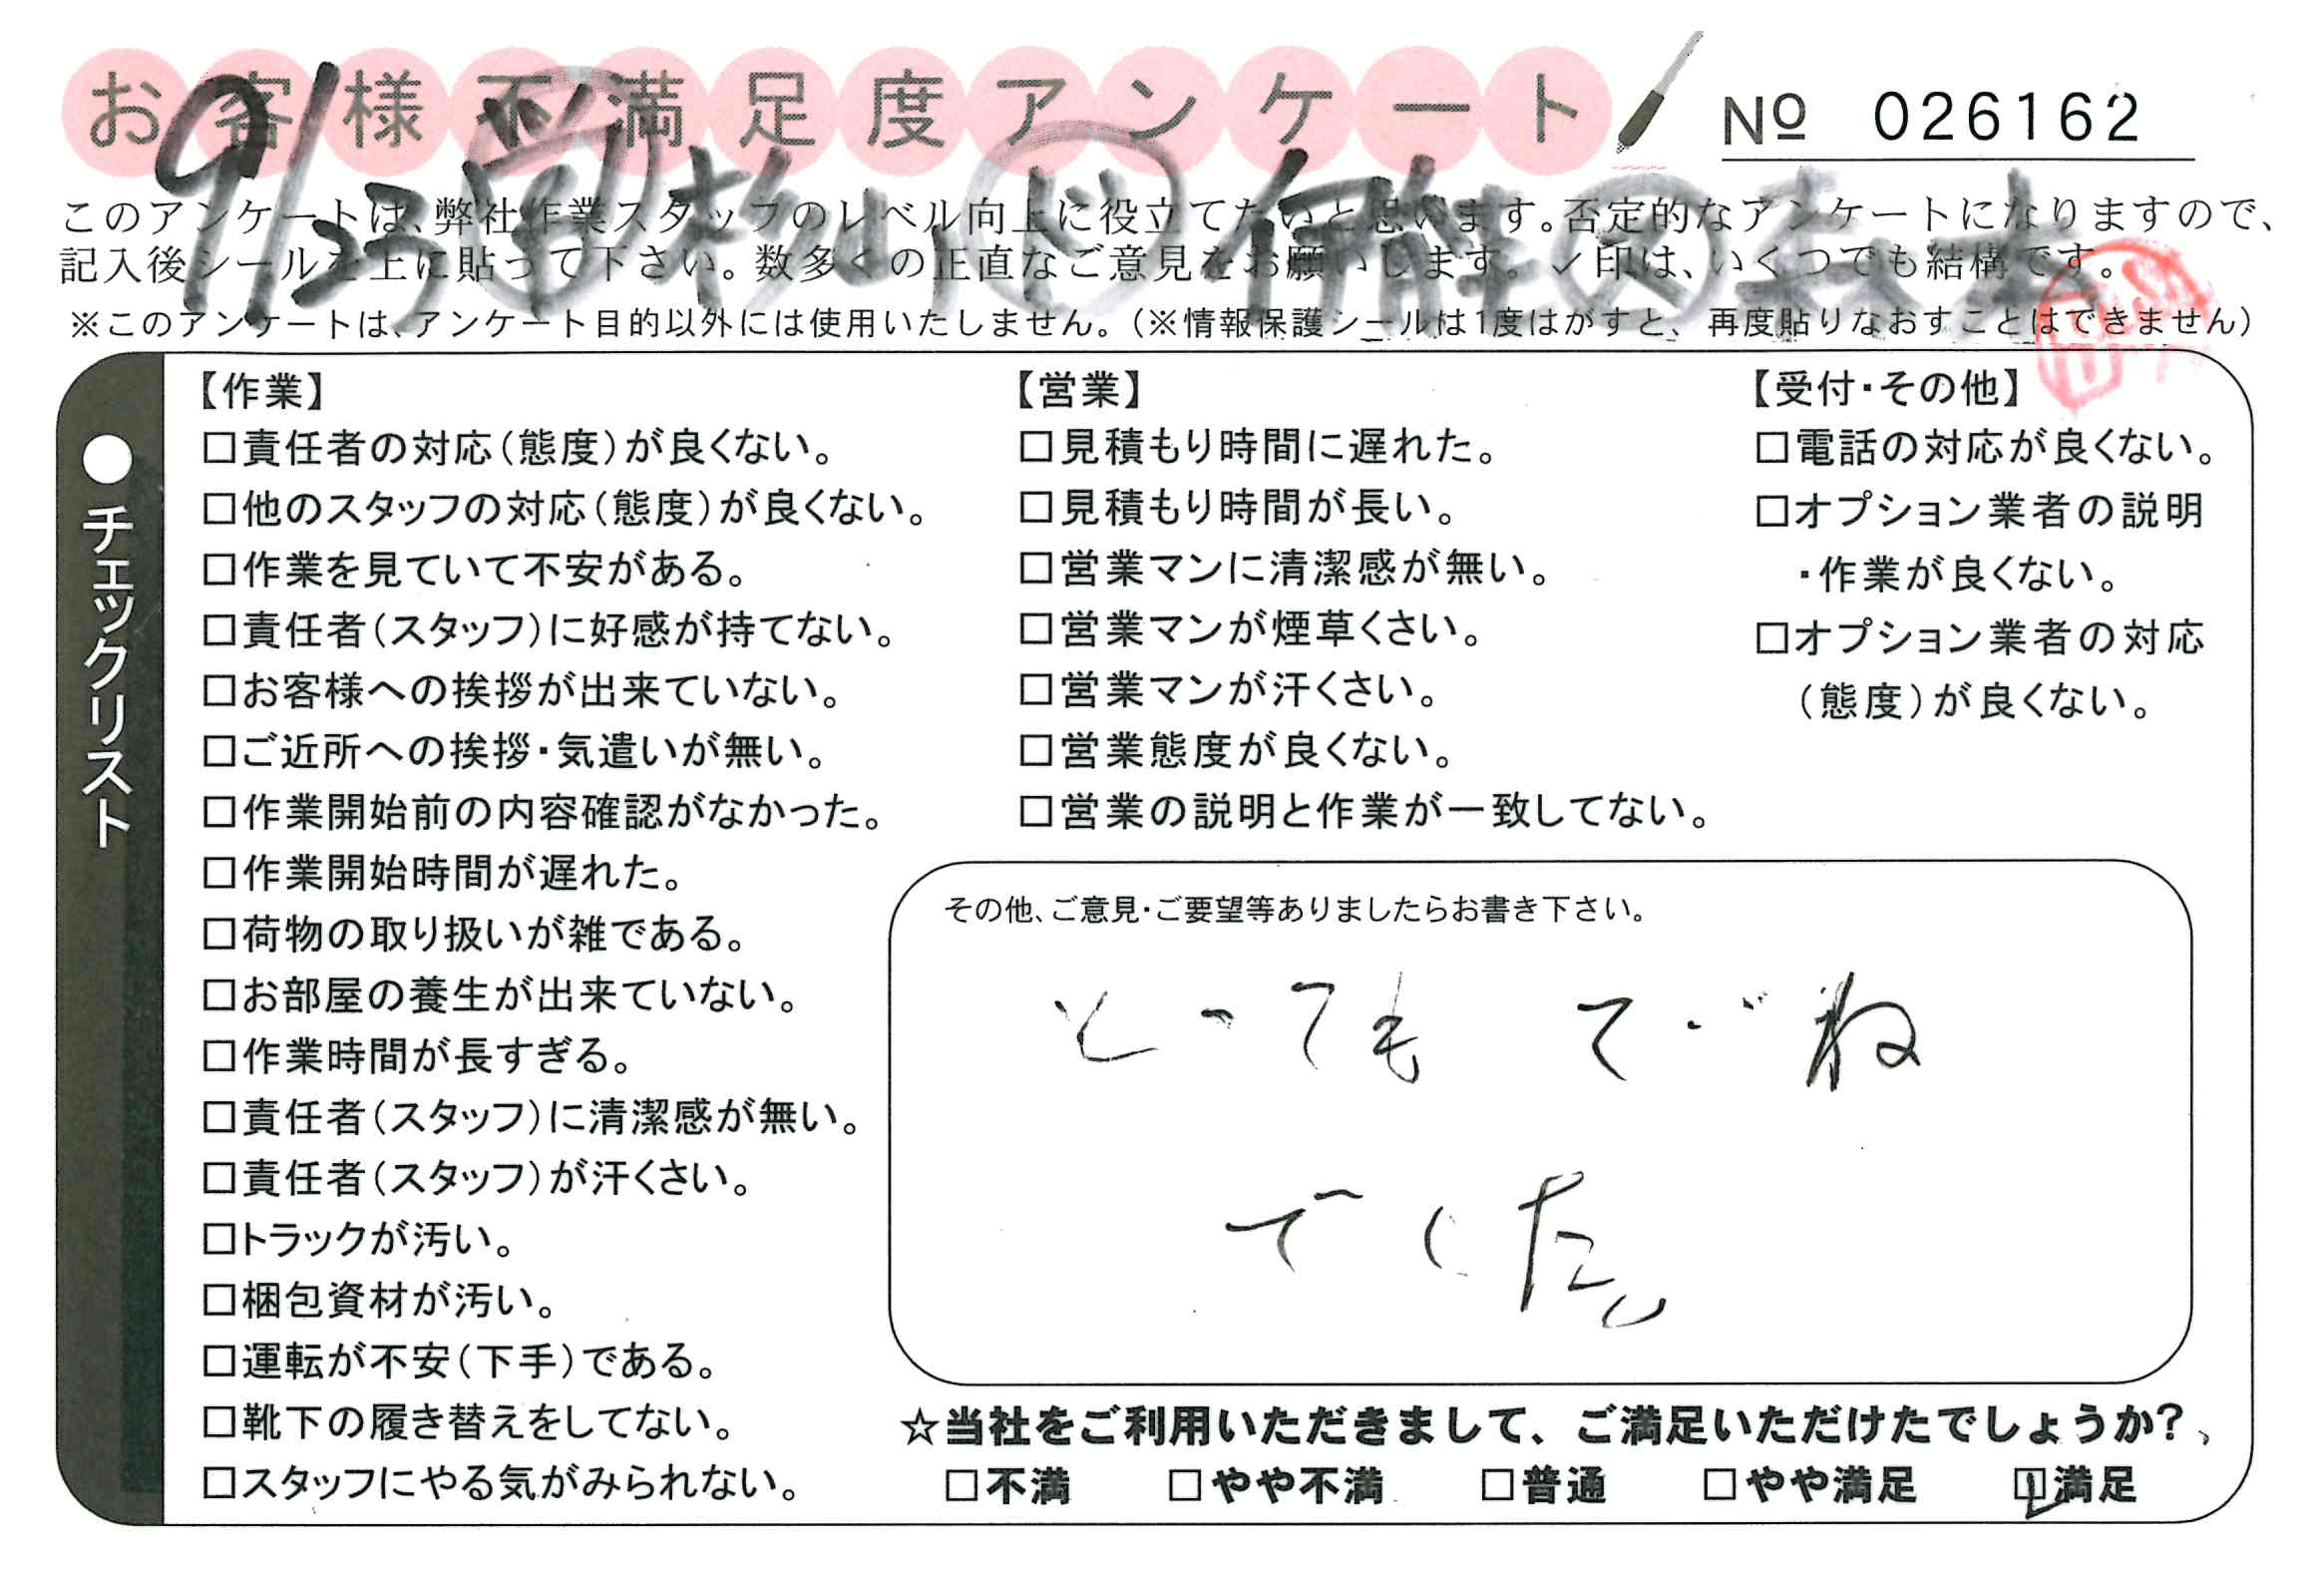 お客様不満足度アンケート
№ 026162
9/23 営 杉山 ド 伊能 人 森本
このアンケートは、弊社作業スタッフのレベル向上に役立てたいと思います。否定的なアンケートになりますので、
記入後シールを上に貼って下さい。数多くの正直なご意見をお願いします。✓印は、いくつでも結構です。
※このアンケートは、アンケート目的以外には使用いたしません。(※情報保護シールは1度はがすと、再度貼りなおすことはできません)
●チェックリスト
【作業】
□責任者の対応(態度)が良くない。
□他のスタッフの対応(態度)が良くない。
□作業を見ていて不安がある。
□責任者(スタッフ)に好感が持てない。
□お客様への挨拶が出来ていない。
□ご近所への挨拶・気遣いが無い。
□作業開始前の内容確認がなかった。
□作業開始時間が遅れた。
□荷物の取り扱いが雑である。
□お部屋の養生が出来ていない。
□作業時間が長すぎる。
□責任者(スタッフ)に清潔感が無い。
□責任者(スタッフ)が汗くさい。
□トラックが汚い。
□梱包資材が汚い。
□運転が不安(下手)である。
□靴下の履き替えをしてない。
□スタッフにやる気がみられない。
【営業】
□見積もり時間に遅れた。
□見積もり時間が長い。
□営業マンに清潔感が無い。
□営業マンが煙草くさい。
□営業マンが汗くさい。
□営業態度が良くない。
□営業の説明と作業が一致してない。
【受付・その他】
□電話の対応が良くない。
□オプション業者の説明
・作業が良くない。
□オプション業者の対応
(態度)が良くない。
その他、ご意見・ご要望等ありましたらお書き下さい。
とっても てーがね
でした。
☆当社をご利用いただきまして、ご満足いただけたでしょうか?
□不満 □やや不満 □普通 □やや満足 ☑満足